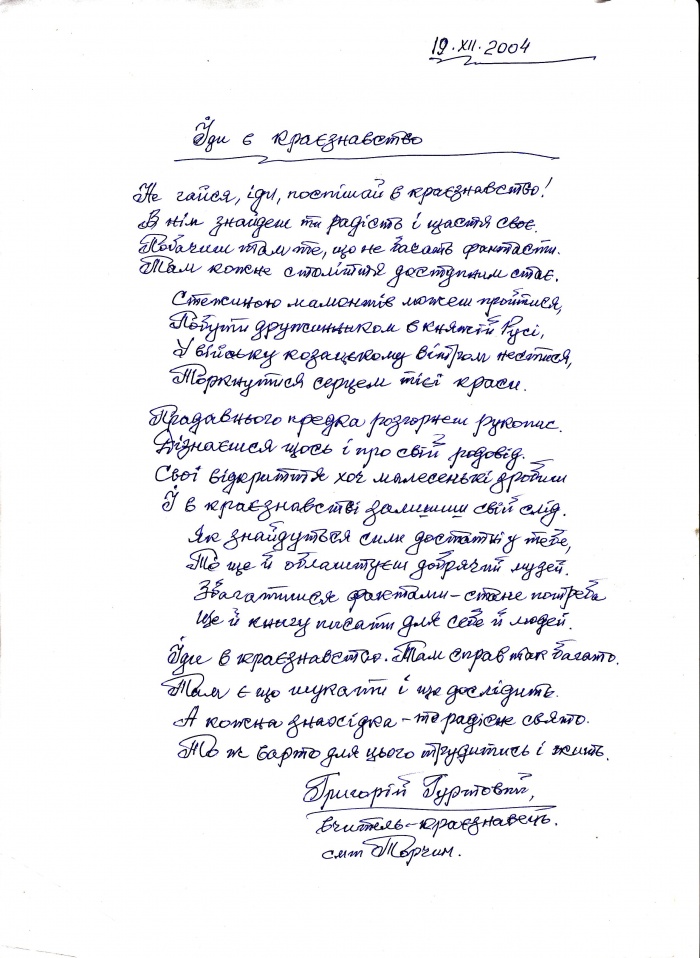 19.XII.2004
Іди в краєзнавство
Не гайся, іди, поспішай в краєзнавство!
В нім знайдеш ти радість і щастя своє.
Побачиш там те, що не бачать фантасти.
Там кожне століття доступним стає.
Стежиною мамонтів можеш пройтися,
Побути дружинником в княжій Русі,
У війську козацькому вітром нестися,
Торкнутися серцем тієї краси.
Прадавнього предка розгорнеш рукопис.
Дізнаєшся щось і про свій родовід.
Свої відкриття хоч малесенькі зробиш
І в краєзнавстві залишиш свій слід.
Як знайдуться сили достатні у тебе,
То ще й облаштуєш добрячий музей.
Збагатишся фактами – стане потреба
Ще й книгу писати для себе й людей.
Іди в краєзнавство. Там справ так багато.
Там є що шукати і ще дослідить.
А кожна знахідка – то радісне свято.
То ж варто для цього трудитись і жить.
Григорій Гуртовий,
вчитель-краєзнавець.
смт Торчин.